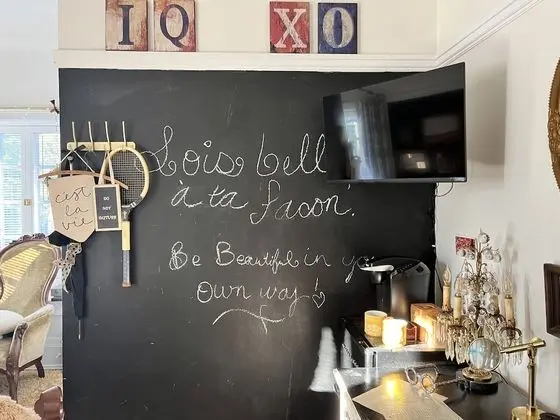 IQ XO
Lois bell
à ta façon!
Be Beautiful in yo
Own way!
c'est
la
vie
DO
NOT
DISTURB